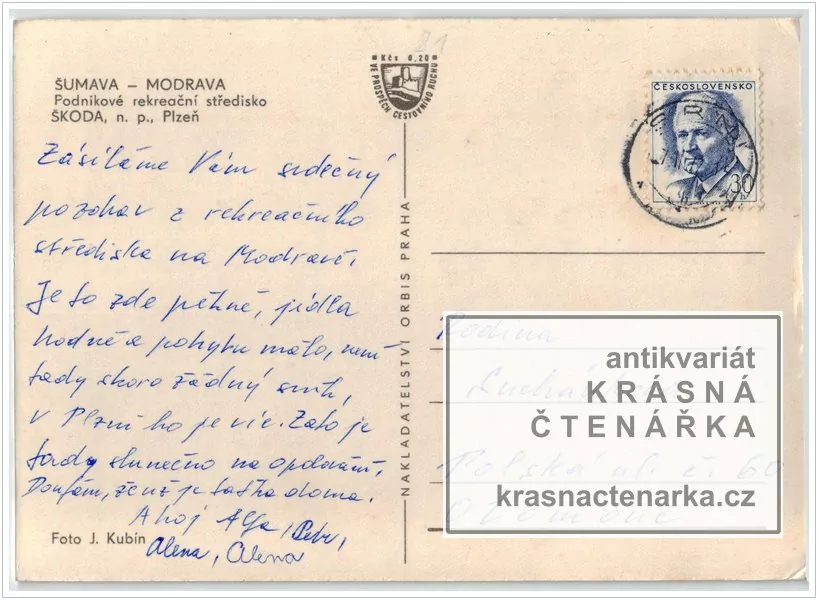 ŠUMAVA – MODRAVA
Podnikové rekreační středisko
ŠKODA, n. p., Plzeň
Zásíláme Vám srdečný
pozdrav z rekreačního
střediska na Modravě.
Je to zde pěkné, jídla
hodně a pohybu málo, není
tady skoro žádný sníh,
v Plzni ho je víc. Zato je
tady slunečno na opalování.
Doufám, že už je taťka doma.
Ahoj Petr,
Alena, Alena
Foto J. Kubín
Kčs 0,20
VE PROSPĚCH CESTOVNÍHO RUCHU
NAKLADATELSTVÍ ORBIS PRAHA
ČESKOSLOVENSKO
30
Rodina
Polská ul. č. 60
Olomouc
antikvariát
KRÁSNÁ
ČTENÁŘKA
krasnactenarka.cz